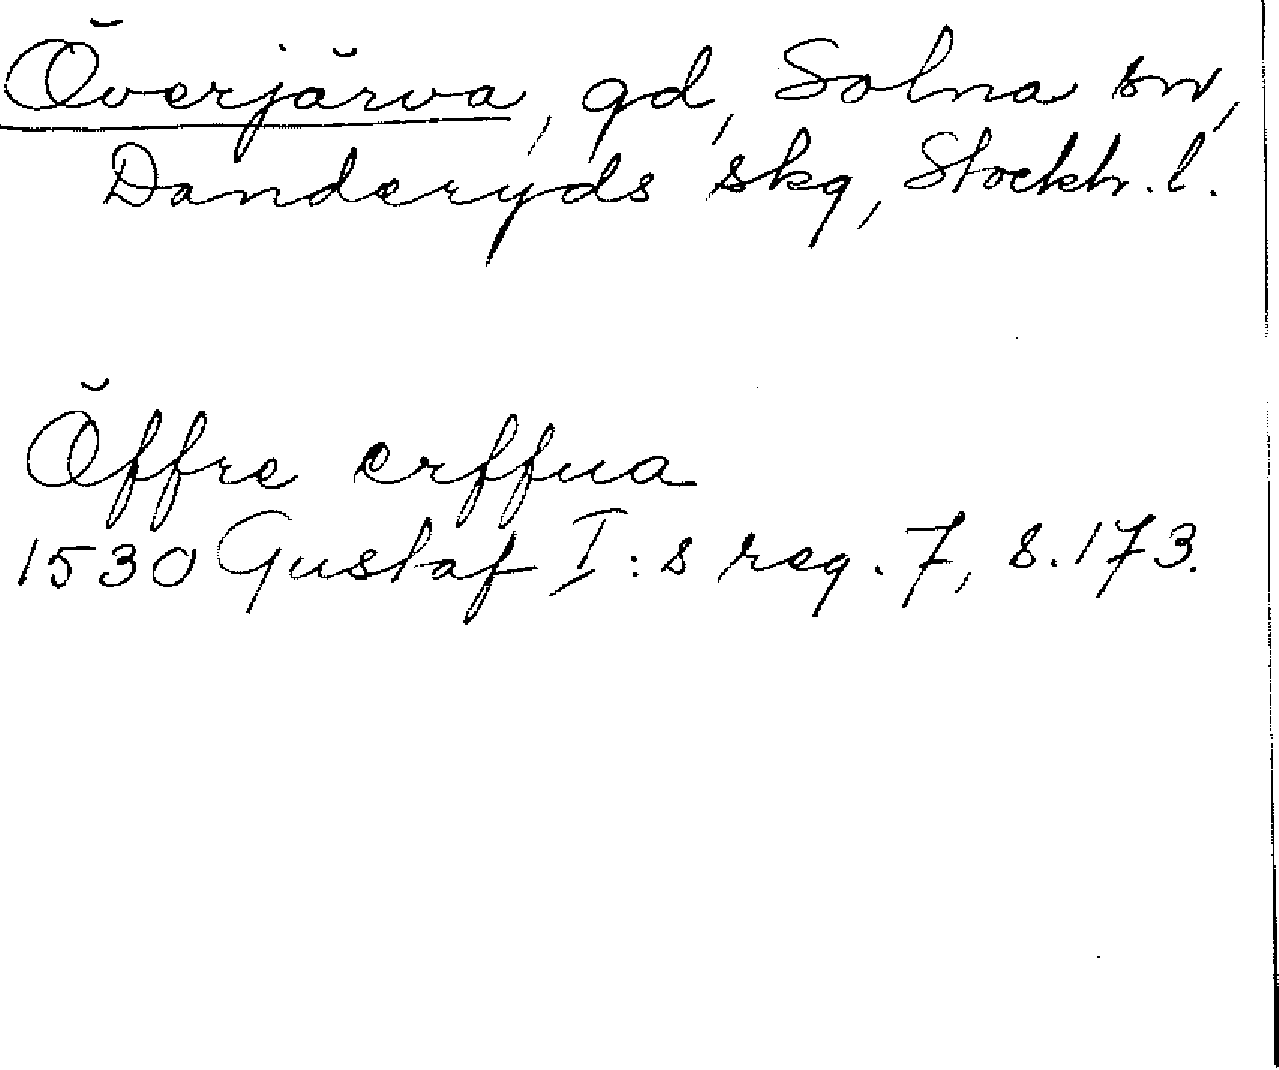 Överjärva, gd, Solna sn,
Danderyds skg, Stockh. l.
Öffre erffua
1530 Gustaf I:s reg. 7, s. 173.